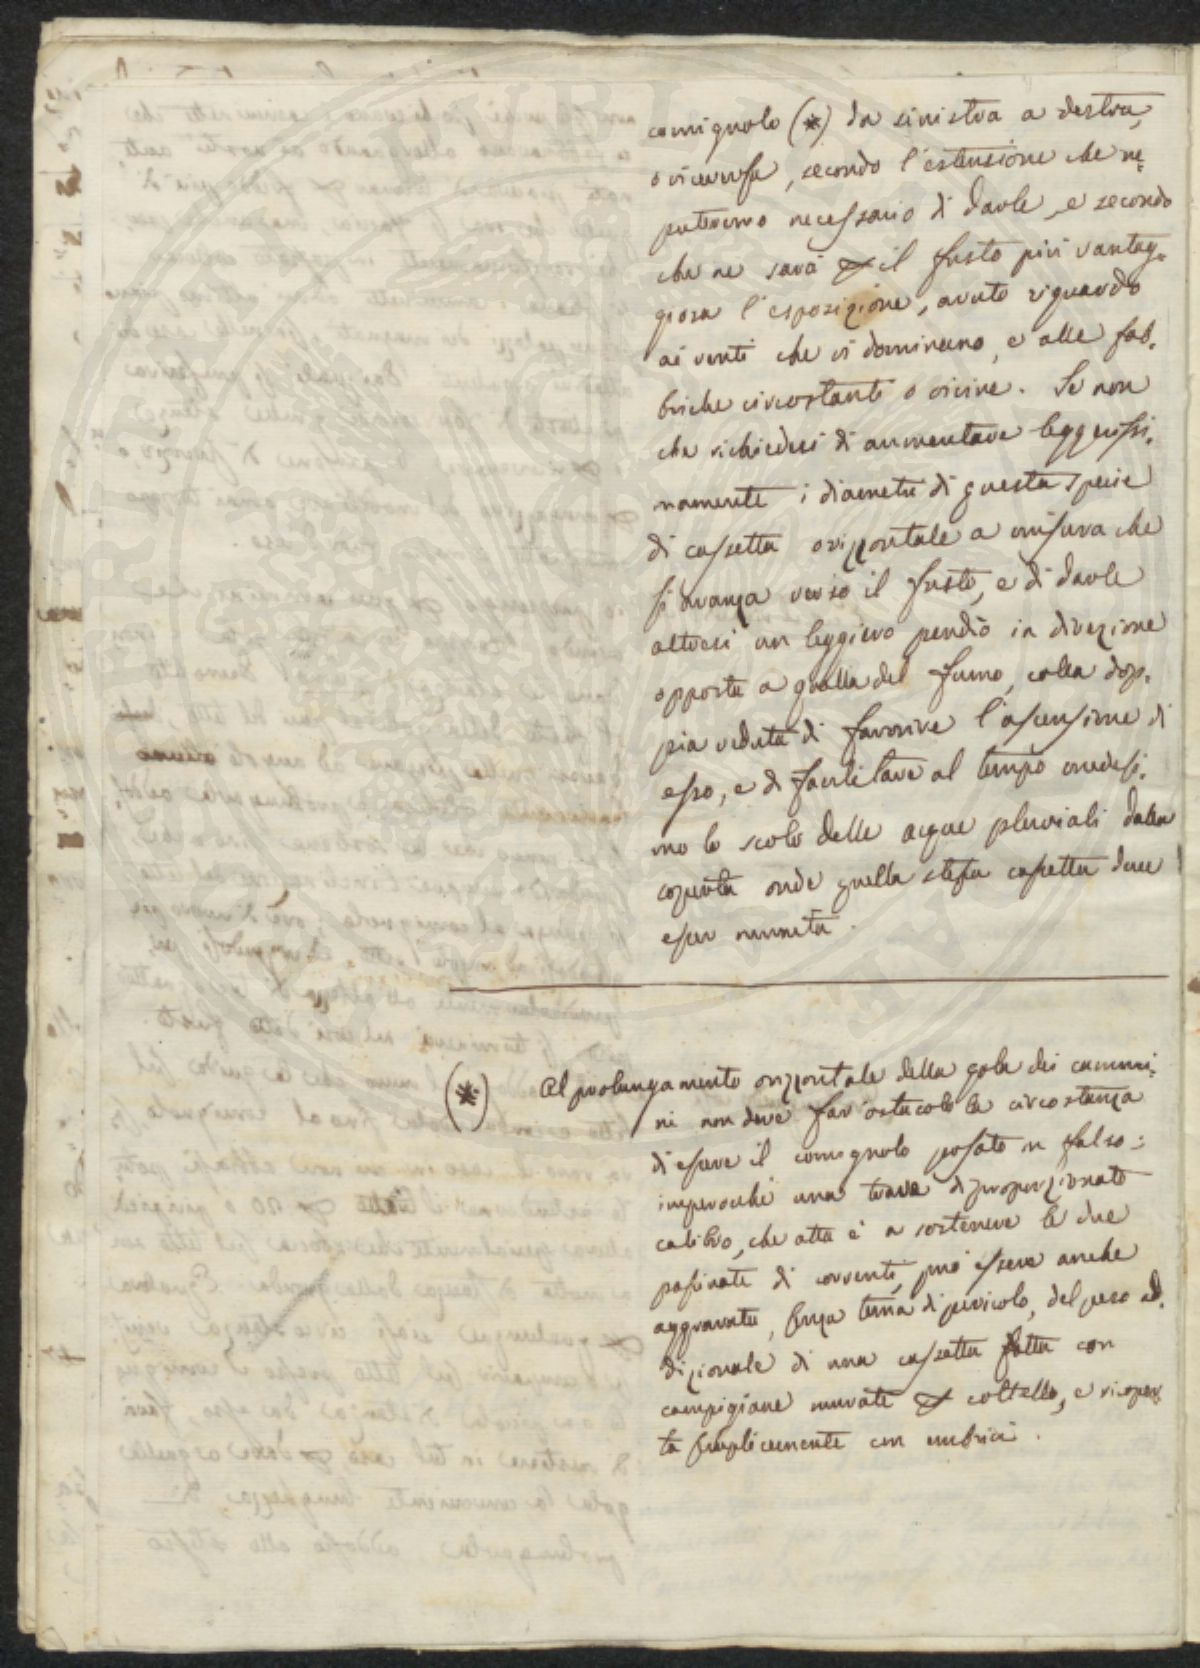 comignolo (*) da sinistra a destra,
o viceversa, secondo l'estensione che re=
puteremo necessario di darle, e secondo
che ne sarà p il fusto più vantag=
giosa l'esposizione, avuto riguardo
ai venti che vi dominano, e alle fab=
briche circostanti o vicine. Se non
che richiedesi di aumentare leggerissi=
mamente i diametri di questa specie
di cassetta orizzontale a misura che
si avanza verso il fusto, e di darle
altresì un leggiero pendìo in direzione
opposta a quella del fumo, colla dop=
pia veduta di favorire l'ascensione di
esso, e di facilitare al tempo medesi=
mo lo scolo delle acque pluviali dalla
coperta onde quella stessa cassetta deve
esser munita.
(*) Al prolungamento orizzontale della gola dei cammi=
ni non deve far ostacolo la circostanza
di essere il comignolo posato in falso:
imperocchè una trave di proporzionato
calibro, che atta è a sostenere le due
posinate di correnti, può essere anche
aggravata, senza tema di pericolo, del peso ad=
dizionale di una cassetta fatta con
campigiane murate p coltello, e ricoper=
ta semplicemente con embrici.